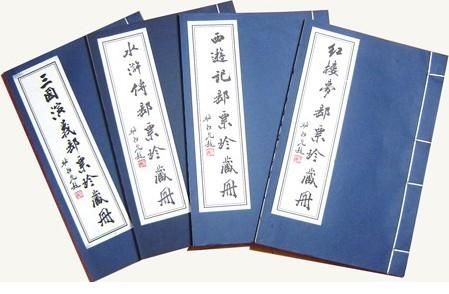 三国演义邮票珍藏册
水浒传邮票珍藏册
西游记邮票珍藏册
红楼梦邮票珍藏册